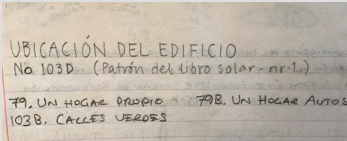 UBICACIÓN DEL EDIFICIO
No 103D (Patrón del libro solar - nr 1.)
79. UN HOGAR PROPIO 79B. UN HOGAR AUTOS
103B. CALLES VERDES